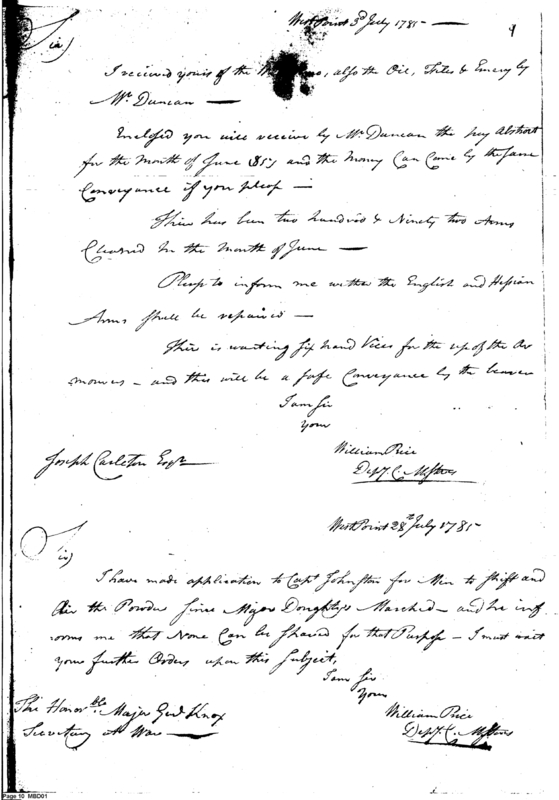 West Point 3d July 1785
9
Sir)
I received yours of the also the Oil, Files & Emery by
Mr. Duncan
Enclosed you will receive by Mr. Duncan the pay Abstract
for the Month of June and the Money Can Come by the same
Conveyance if you pleas
Thire has been two hundred & Ninety two Arms
Cleaned In the Month of June
Pleas to inform me wether the English and Hessian
Arms shall be repaired
Thire is wanting Six hand Vices for the use of the Ar
mourers - and this will be a safe Conveyance by the bearer
I am Sir
Your
William Price
Depy. C. M Stores
Joseph Carleton Esqr.
West Point 28th July 1785
Sir)
I have made application to Capt Johnston for Men to Shift and
Air the Powder Since Major Doughtys Marched - and he inf
orms me that None Can be Spared for that Purpose - I must wait
your further Orders upon this Subject,
I am Sir
Your
William Price
Depy. C. M Stores
The Honorble. Major Genl Knox
Secretary At War
Page 10 MBD01